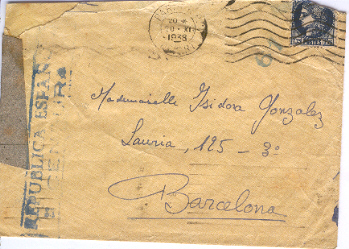 20
1938
Mademoiselle Isidora Gonzalez
Lauria, 125 - 3º
Barcelona
REPUBLICA ESPAÑ
CENSURA